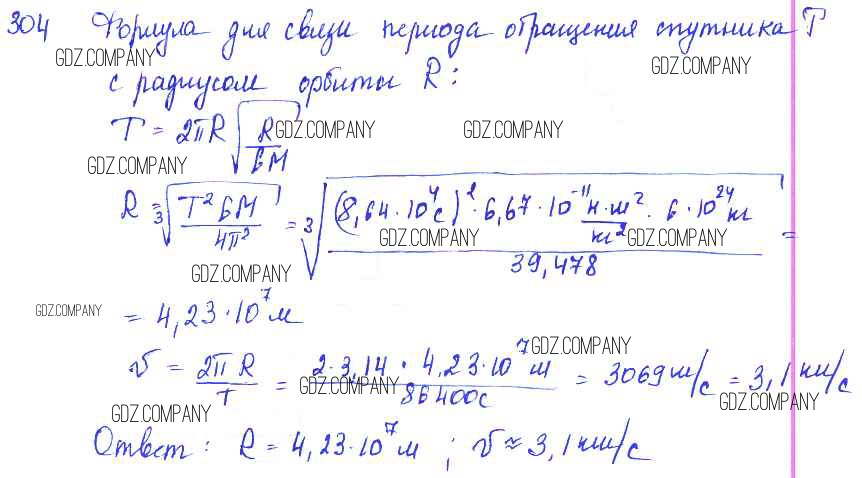 304 Формула для связи периода обращения спутника T
GDZ.COMPANY GDZ.COMPANY
с радиусом орбиты R:
T = 2πR √(R/GM) GDZ.COMPANY GDZ.COMPANY
GDZ.COMPANY
R = ∛(T² GM / 4π²) = ∛((8,64·10⁴c)²·6,67·10⁻¹¹ н·м²/кг² · 6·10²⁴кг / 39,478) =
GDZ.COMPANY GDZ.COMPANY
GDZ.COMPANY
GDZ.COMPANY
= 4,23·10⁷м
GDZ.COMPANY
v = 2πR/T = 2·3,14·4,23·10⁷м / 86400c = 3069 м/c = 3,1 км/c
GDZ.COMPANY GDZ.COMPANY
GDZ.COMPANY
Ответ: R = 4,23·10⁷м ; v ≈ 3,1 км/c